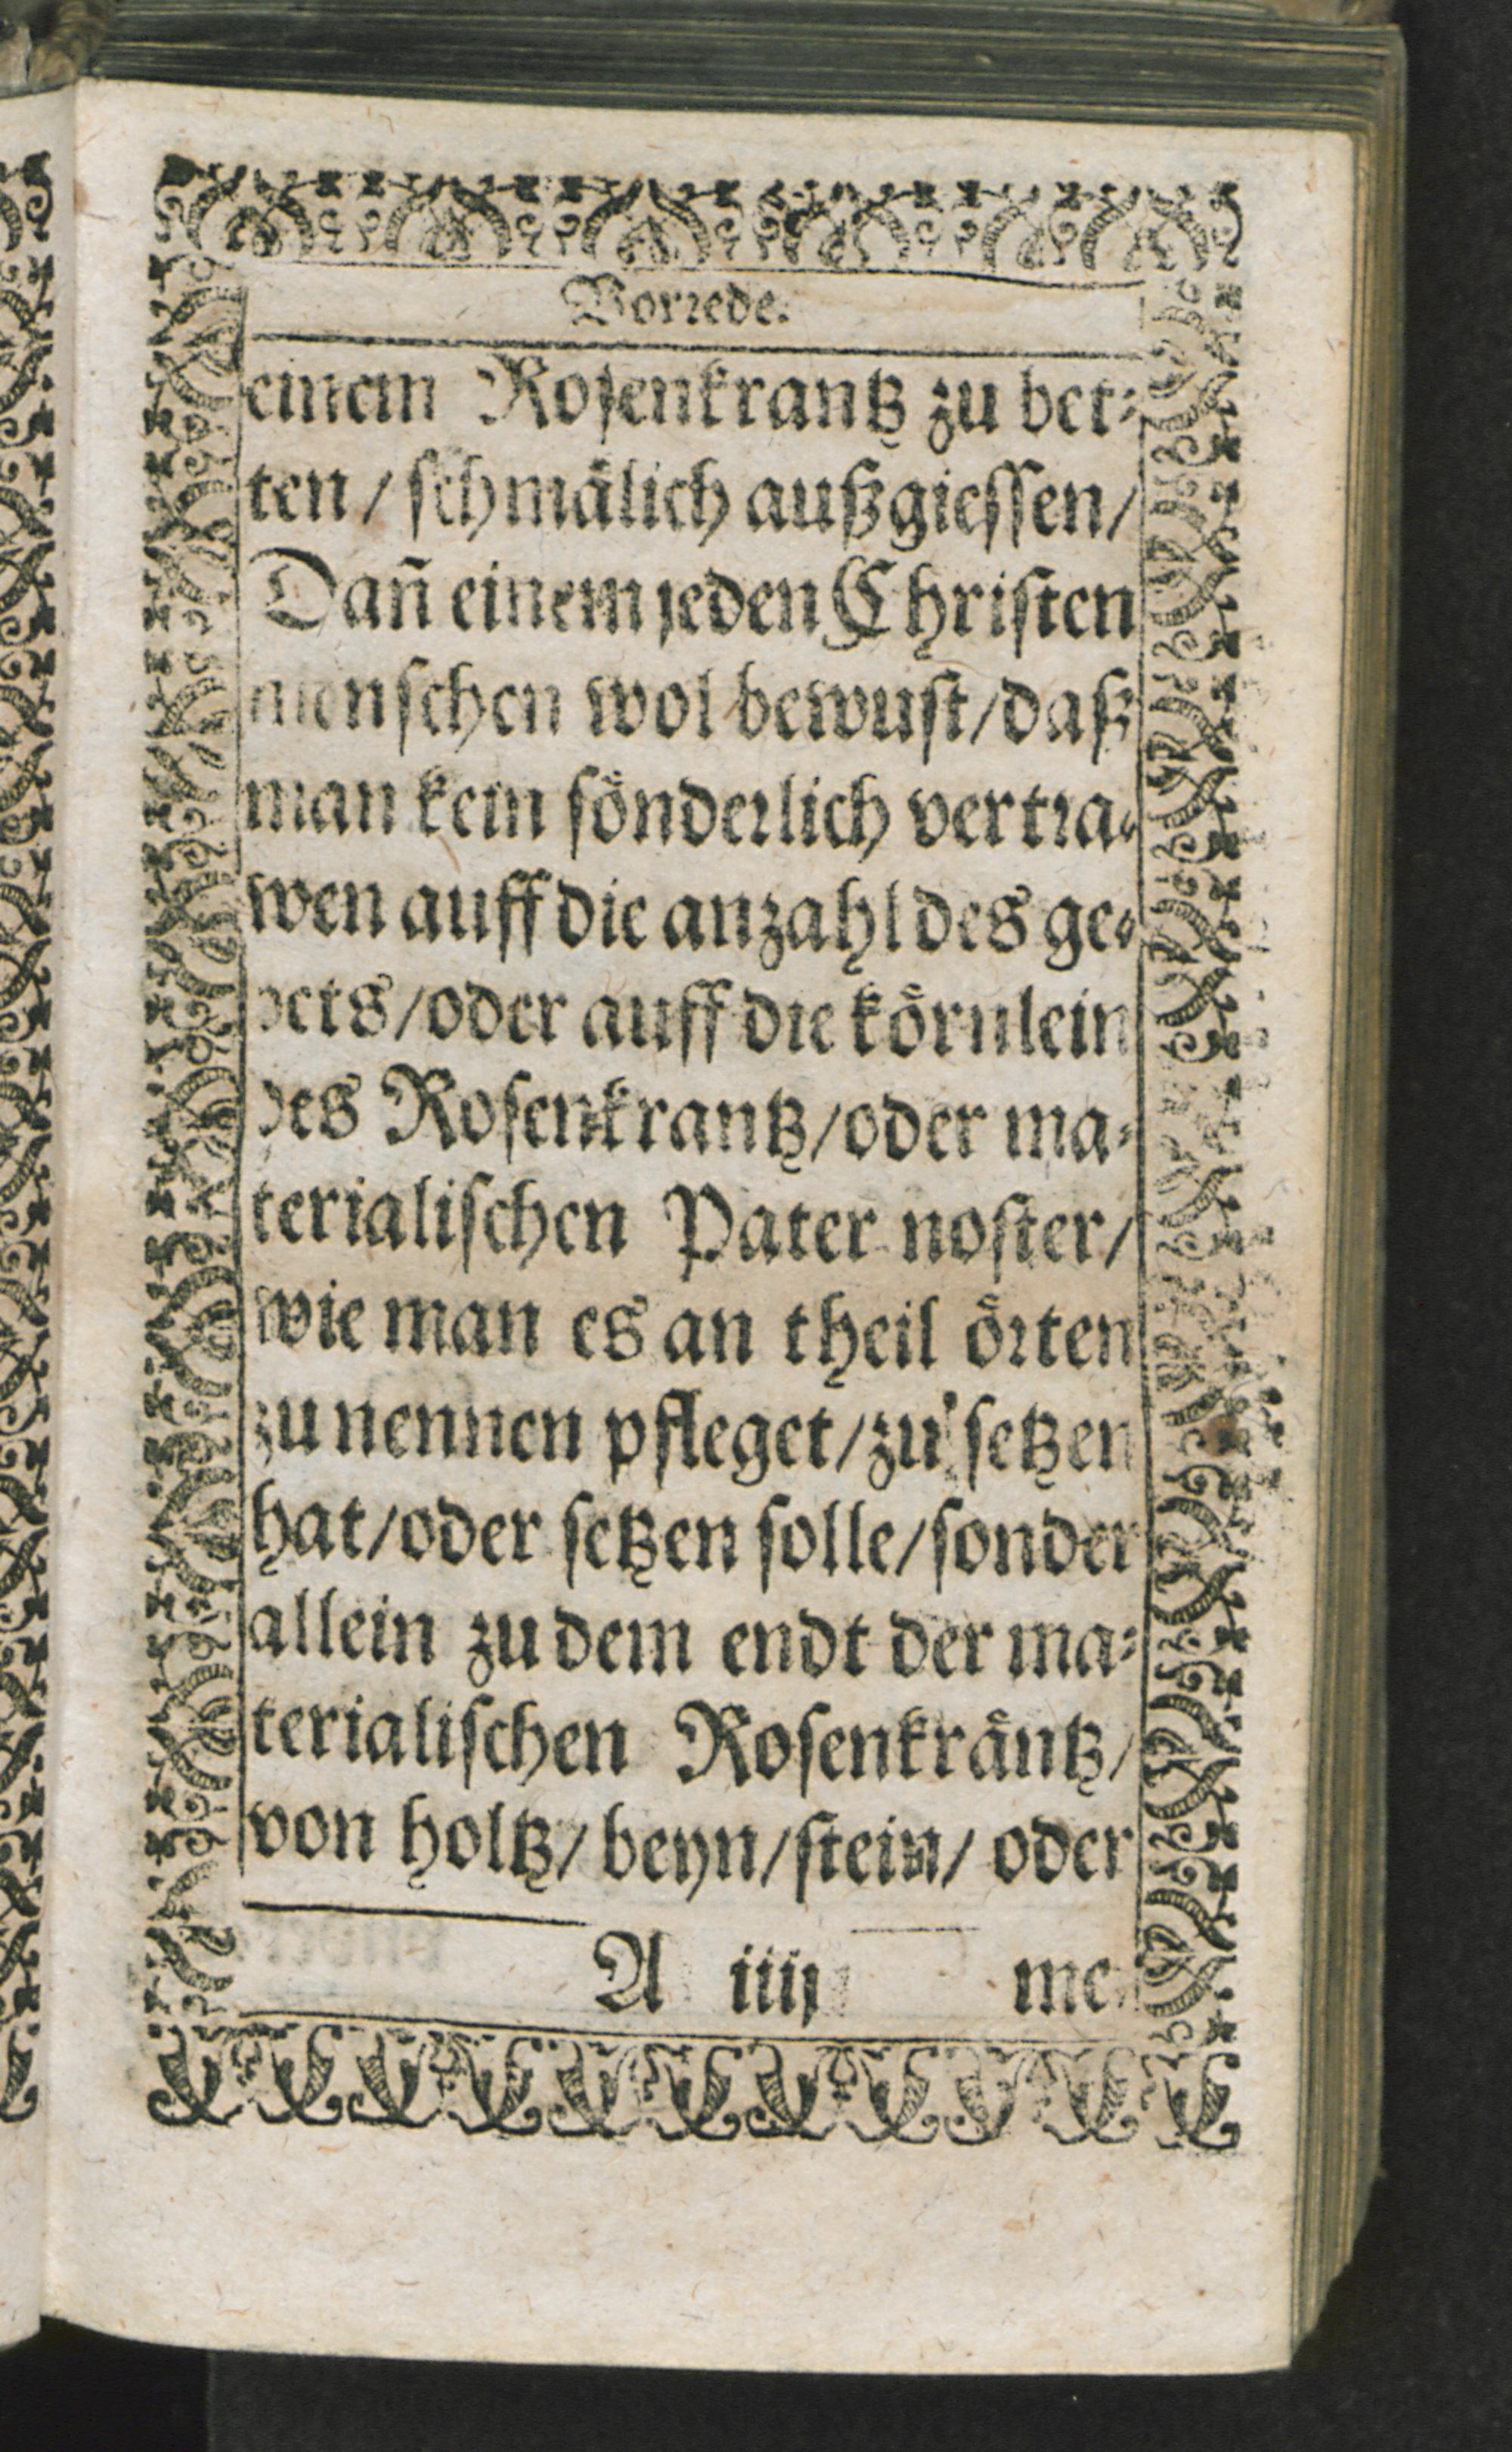 Vorrede.
einem Rosenkrantz zu bet⸗
ten / schmälich außgiessen /
Dañ einem jeden Christen
menschen wol bewust / daß
man kein sönderlich vertra⸗
wen auff die anzahl des ge⸗
bets / oder auff die körnlein
des Rosenkrantz / oder ma⸗
terialischen Pater noster /
wie man es an theil örten
zu nennen pfleget / zu setzen
hat / oder setzen solle / sonder
allein zu dem endt der ma⸗
terialischen Rosenkräntz /
von holtz / beyn / stein / oder
A iiij me⸗